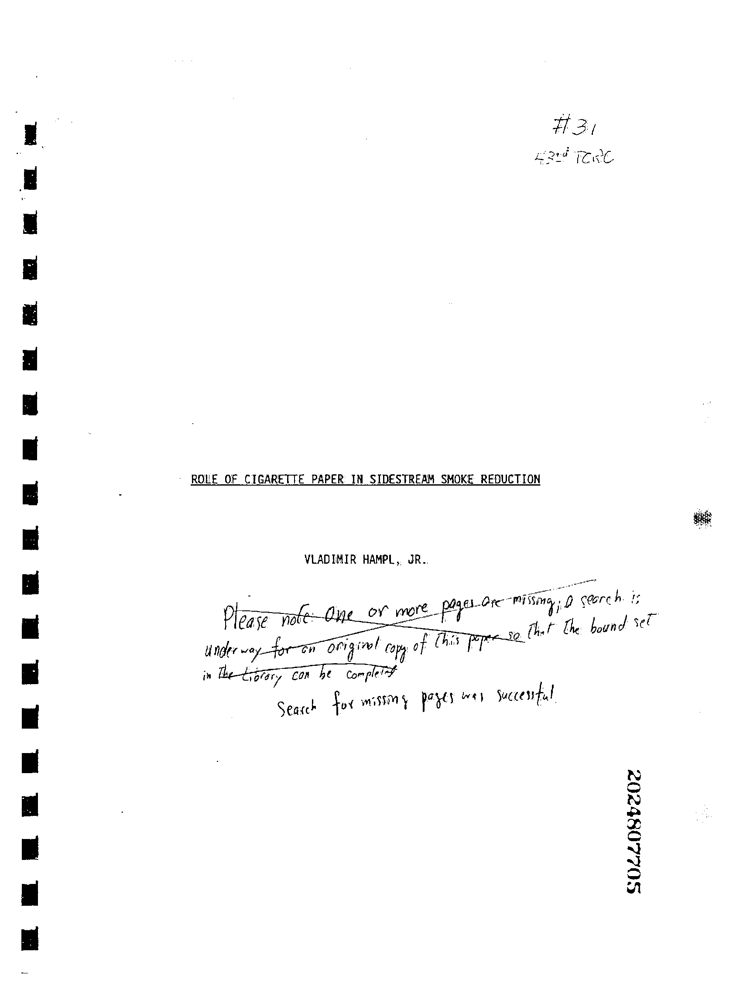 #31
43rd TCRC
ROLE OF CIGARETTE PAPER IN SIDESTREAM SMOKE REDUCTION
VLADIMIR HAMPL, JR.
Please note: One or more pages are missing; a search is
underway for an original copy of this paper so that the bound set
in the Library can be completed
Search for missing pages was successful.
2024807705